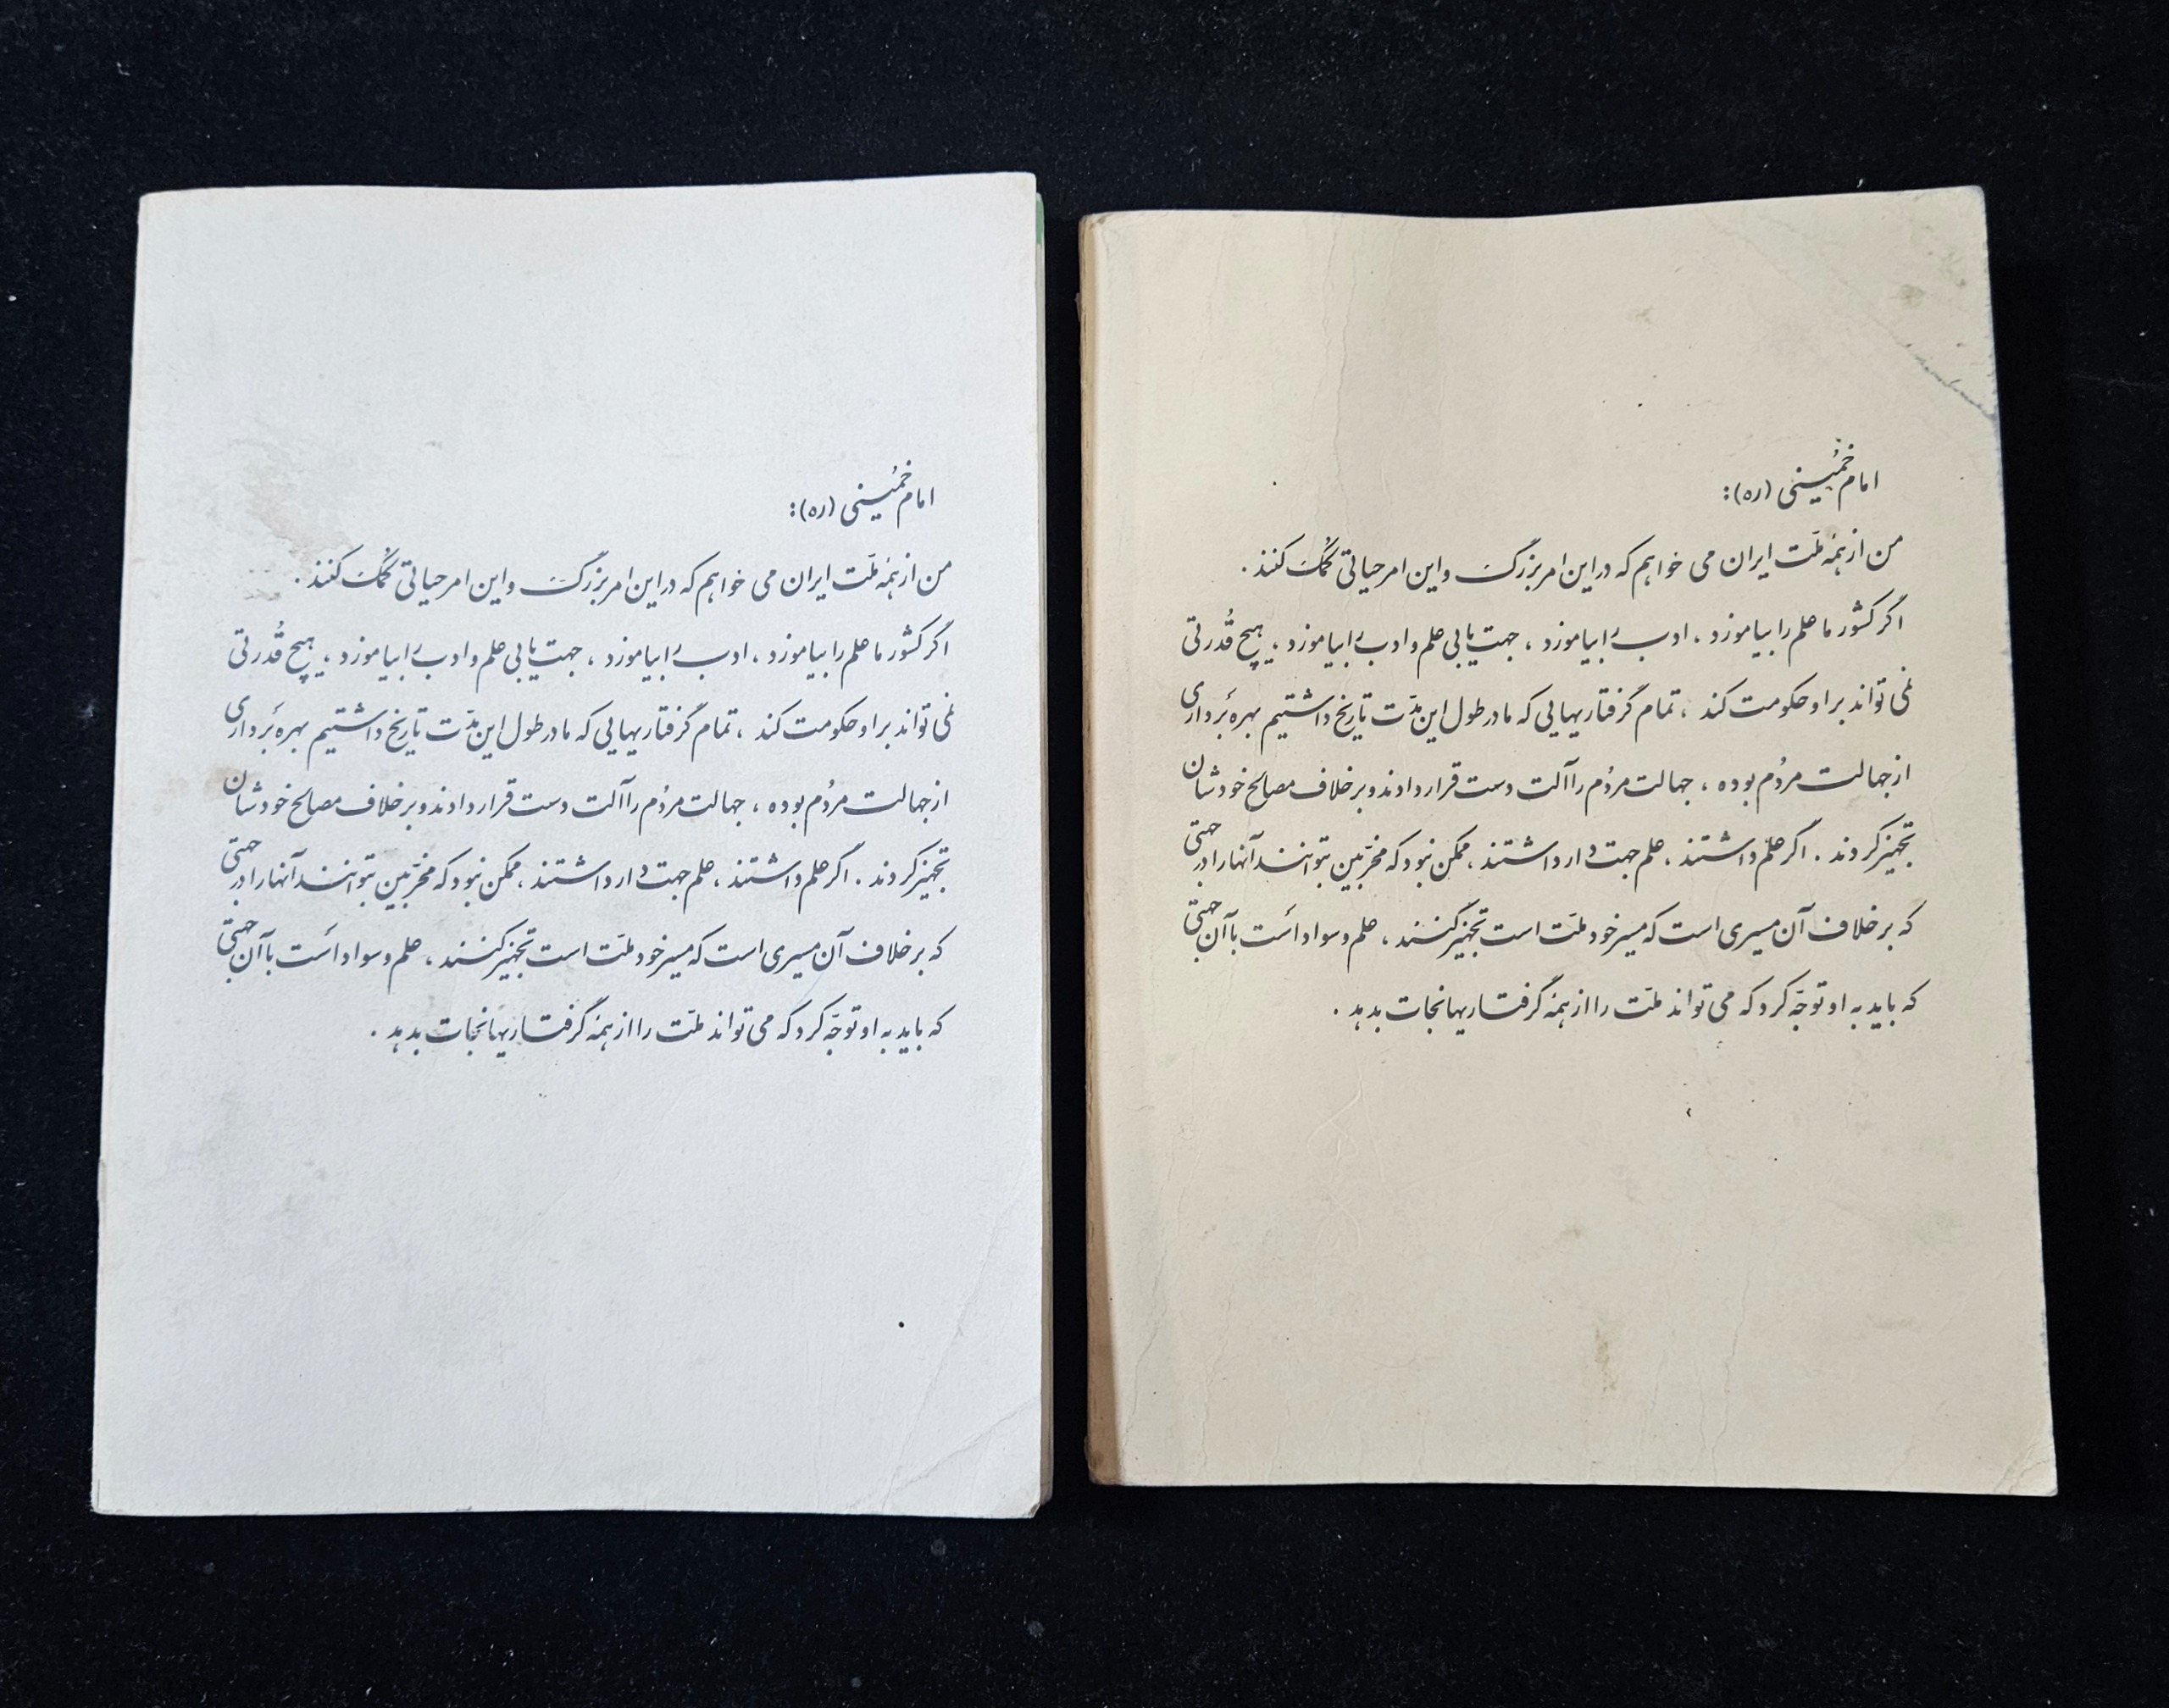 امام خمینی (ره):
من از همهٔ ملّت ایران می خواهم که در این امر بزرگ و این امر حیاتی کُمک کنند.
اگر کشور ما علم را بیاموزد، ادب را بیاموزد، جهت یابی علم و ادب را بیاموزد، هیچ قُدرتی
نمی تواند بر او حکومت کند، تمام گرفتاریهایی که ما در طول این مدّت تاریخ داشتیم بهره بَرداری
از جهالت مردُم بوده، جهالت مردُم را آلت دست قرار دادند و بر خلاف مصالح خودشان
تجهیز کردند. اگر علم داشتند، علم جهت دار داشتند، ممکن نبود که مخرّبین بتوانند آنها را در جهتی
که بر خلاف آن مسیری است که مسیر خود ملّت است تجهیز کنند، علم و سواد است با آن جهتی
که باید به او توجّه کرد که می تواند ملّت را از همهٔ گرفتاریها نجات بدهد.
امام خمینی (ره):
من از همهٔ ملّت ایران می خواهم که در این امر بزرگ و این امر حیاتی کُمک کنند.
اگر کشور ما علم را بیاموزد، ادب را بیاموزد، جهت یابی علم و ادب را بیاموزد، هیچ قُدرتی
نمی تواند بر او حکومت کند، تمام گرفتاریهایی که ما در طول این مدّت تاریخ داشتیم بهره بَرداری
از جهالت مردُم بوده، جهالت مردُم را آلت دست قرار دادند و بر خلاف مصالح خودشان
تجهیز کردند. اگر علم داشتند، علم جهت دار داشتند، ممکن نبود که مخرّبین بتوانند آنها را در جهتی
که بر خلاف آن مسیری است که مسیر خود ملّت است تجهیز کنند، علم و سواد است با آن جهتی
که باید به او توجّه کرد که می تواند ملّت را از همهٔ گرفتاریها نجات بدهد.